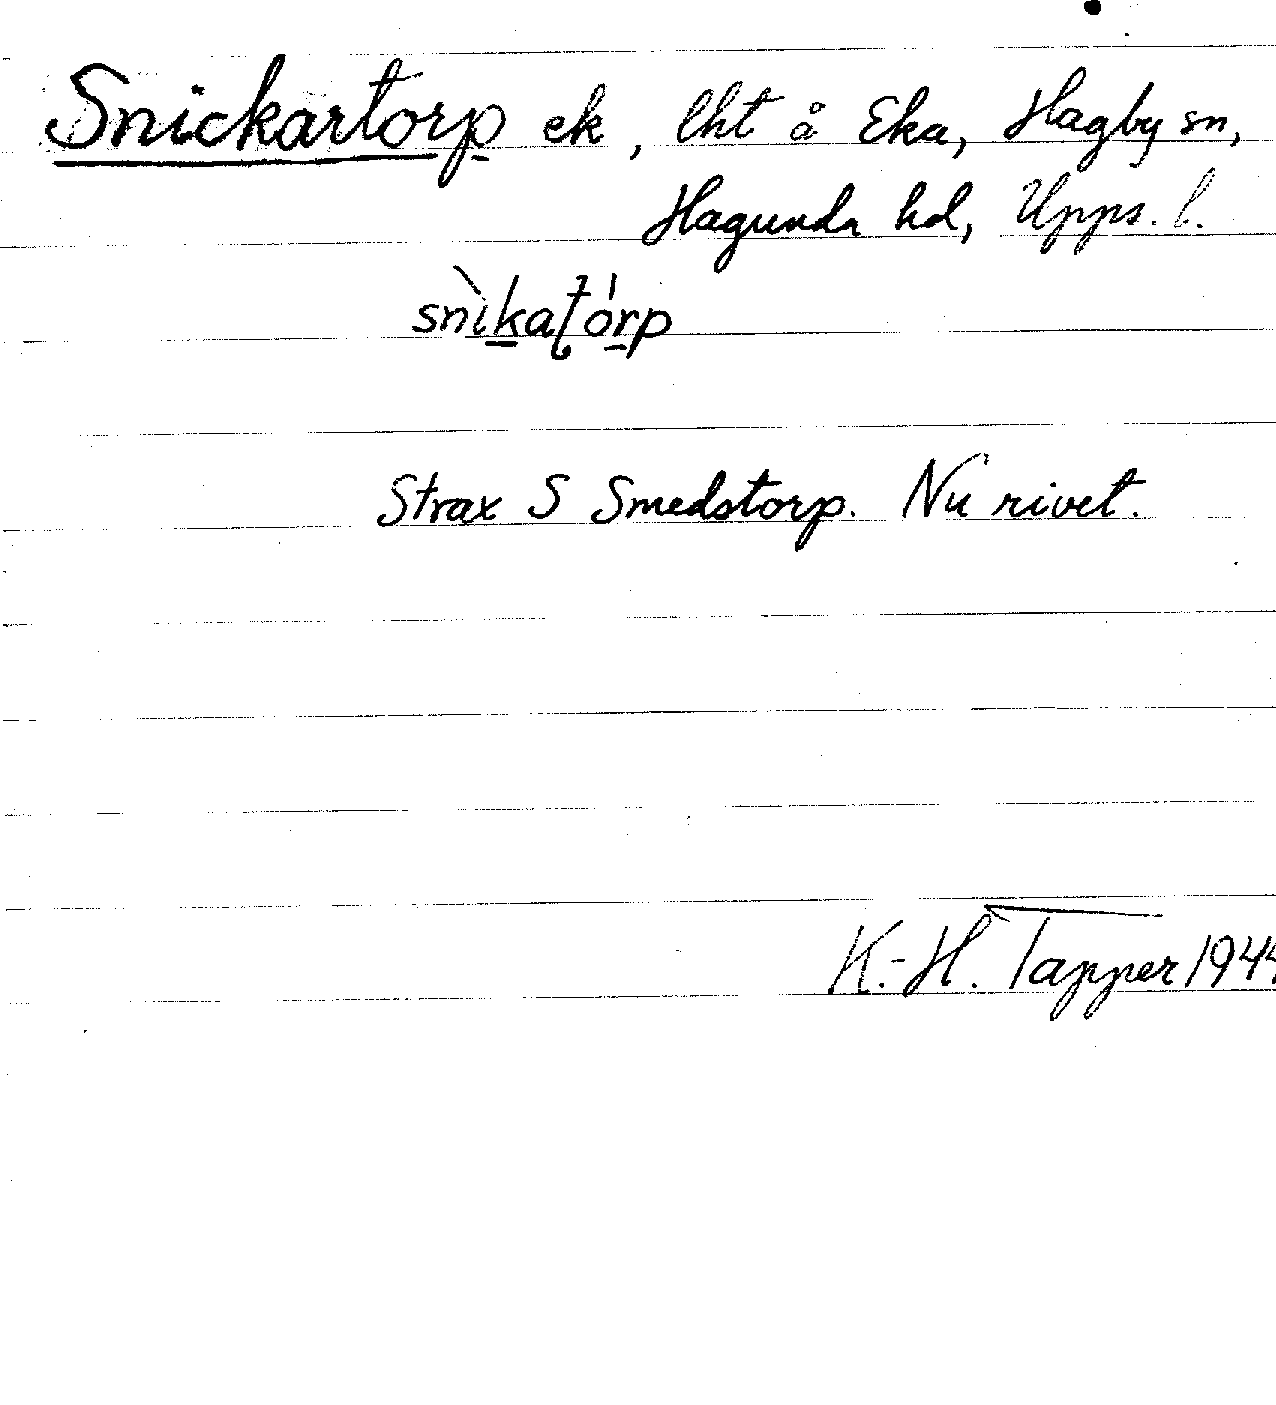 Snickartorp ek, lht å Eka, Hagby sn,
Hagunda hd, Upps. l.
snìka̱ʈóṟp
Strax S Smedstorp. Nu rivet.
K.-H. Tapper 1944